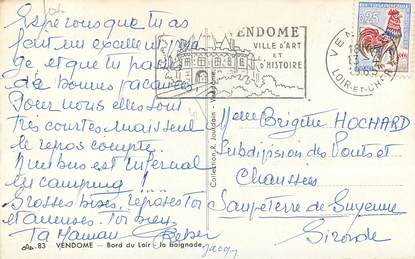 Espérons que tu as
fait un excellent voya
ge et que tu passes
de bonnes vacances
Pour nous elles sont
très courtes mais seul
le repos compte.
Minibus est infernal
en camping !---
Grosses bises, reposes toi
et amuses. Toi bien
Ta Maman
Jacqy
VENDOME
VILLE D'ART
ET
D'HISTOIRE
0,25
VENDOME
18H
13
1965
LOIR-ET-CHER
Collection R. Jourdain - Vendôme
Melle Brigitte HOCHARD
Subdivision des Ponts et
Chaussées
Sauveterre de Guyenne
Gironde
83 VENDOME — Bord du Loir - la baignade